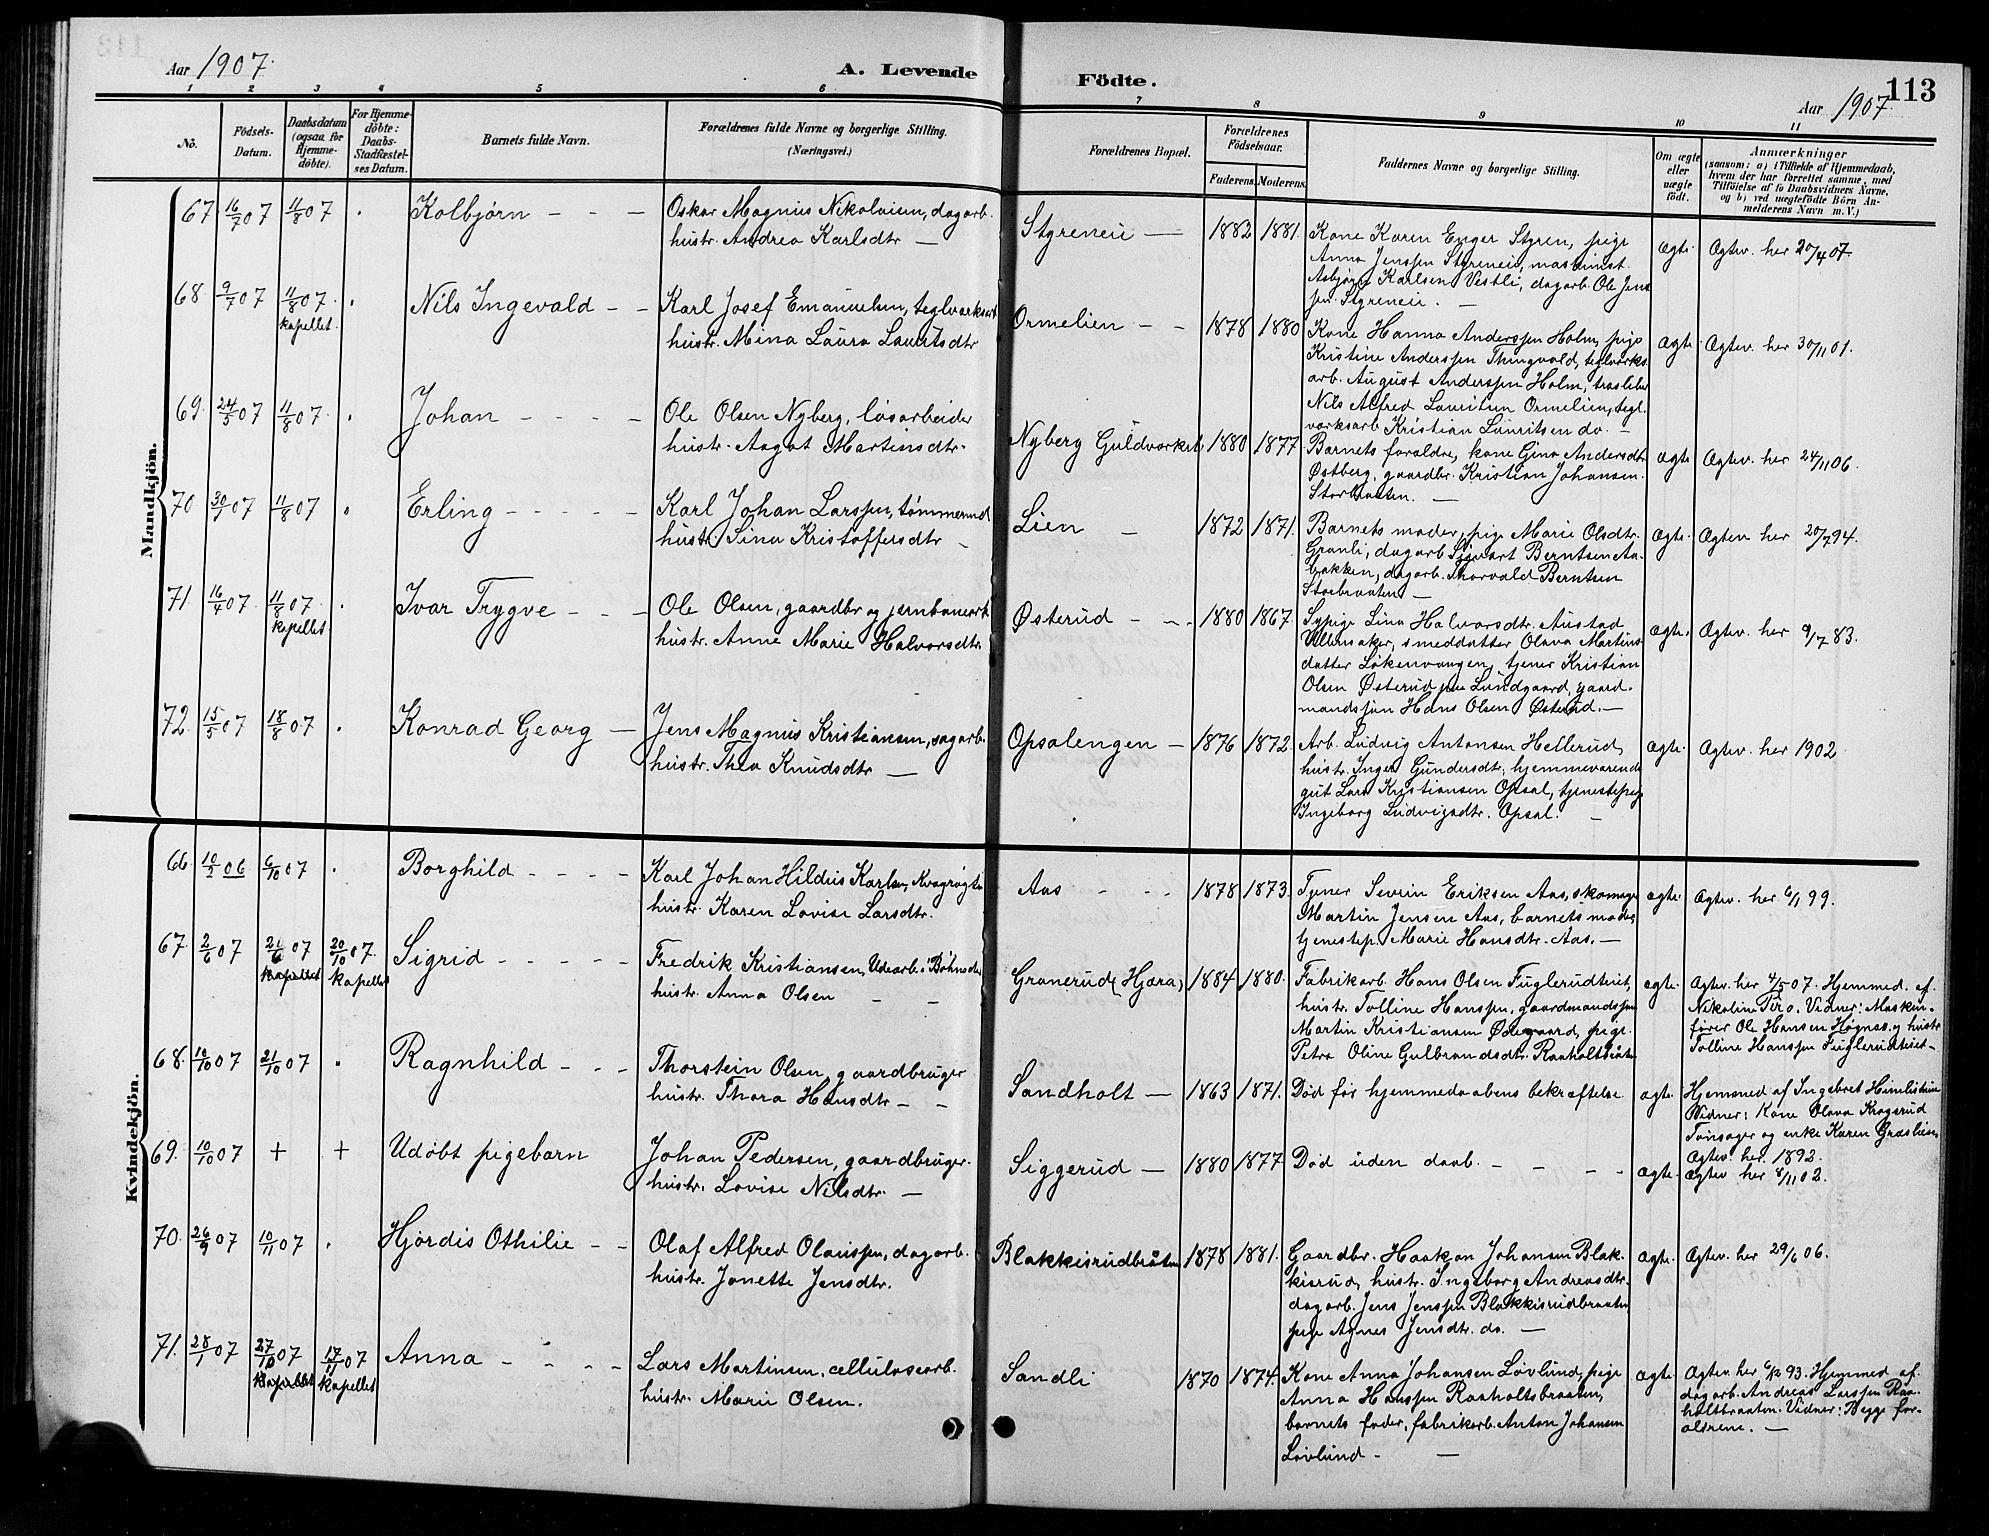 Aar 1907.
A. Levende Födte.
113
Aar 1907.
1 2 3 4 5 6 7 8 9 10 11
No.
Födsels-Datum.
Daabsdatum (ogsaa for Hjemme-döbte).
For Hjemme-döbte: Daabs-Stadfæstel-ses Datum.
Barnets fulde Navn.
Forældrenes fulde Navne og borgerlige Stilling. (Næringsvei.)
Forældrenes Bopæl.
Forældrenes Födselsaar.
Faderens. Moderens.
Faddernes Navne og borgerlige Stilling.
Om ægte eller uægte födt.
Anmærkninger
(saasom: a) i Tilfælde af Hjemmedaab,
hvem der har forrettet samme, med
Tilföielse af to Daabsvidners Navne,
og b) ved uægtefödte Börn An-
melderens Navn m. V.)
Mandkjön.
67 16/7 07 11/8 07 . Kolbjørn - - -
Oskar Magnus Nikolaisen, dagarb.
hustr. Andrea Karlsdtr —
Styreneie — 1882 1881.
Kone Karen Enger Styren, pige
Anna Jenssen Styreneie, maskinist
Asbjørn Karlsen Vestli, dagarb. Ole Jens
sen Styreneie. —
ægte. Ægtev. her 20/4 07.
68 9/7 07 11/8 07. kapellet. . Nils Ingevald - -
Karl Josef Emanuelsen, teglværksarb
hustr. Mina Laura Lauritsdtr
Ormelien - - 1878 1880
Kone Hanna Anderssen Holm, pige
Kristine Anderssen Thingvald, teglværks
arb. August Anderssen Holm, træsliber
Nils Alfred Lauritsen Ormelien, tegl.
værksarb Kristian Lauritsen do. -
ægte. Ægtev. her 30/11 01.
69. 24/5 07 11/8 07. . Johan - - - -
Ole Olsen Nyberg, løsarbeider
hustr. Aagot Martinsdtr.
Nyberg Guldværket 1880 1877
Barnets forældre, kone Gina Andersdtr.
Østberg, gaardbr. Kristian Johansen
Storbraaten. —
ægte Ægtev. her 24/11 06.
70 30/1 07 11/8 07 . Erling - - - - -
Karl Johan Larssen, tømmermd
hustr. Sina Kristoffersdtr -
Lien - 1872 1871.
Barnets moder, pige Marie Olsdtr.
Granli, dagarb Sigvart Berntsen Aa-
bakken, dagarb. Thorvald Berntsen
Storbraaten —
ægte. Ægtev. her 20/7 94.
71. 16/4 07. 11/8 07. kapellet . Ivar Trygve - - -
Ole Olsen, gaardbr og jernbanearb
hustr. Anne Marie Halvorsdtr.
Østerud - - - 1880 1867.
Sypige Lina Halvorsdtr. Austad
Ullensaker, smeddatter Olava Martins
datter Løkenvangen, tjener Kristian
Olsen Østerud paa Lundgaard, gaard-
mandssøn Hans Olsen Østerud. —
ægte. Ægtev. her 9/7 83.
72. 15/5 07 18/8 07 . Konrad Georg —
Jens Magnus Kristiansen, sagarb.
hustr. Thea Knudsdtr —
Opsalengen - 1876 1872.
Arb. Ludvig Antonsen Hellerud,
hustr. Inger Gundersdtr, hjemmeværende
gut Lars Kristiansen Opsal, tjenestepige
Ingeborg Ludvigsdtr. Opsal. -
ægte. Ægtev. her 1902.
Kvindekjön.
66 10/2 06 6/10 07 . Borghild - - - -
Karl Johan Hildus Karlsen, Kvægrøgter
hustr. Karen Lovise Larsdtr.
Aas - - - 1878 1873.
Tjener Severin Eriksen Aas, skomager
Martin Jensen Aas, barnets moder,
tjenestep. Marie Hansdtr. Aas. —
ægte. Ægtev. her 6/1 99.
67. 2/6 07 21/6 07 kapellet 20/10 07. kapellet Sigrid - - - - -
Fredrik Kristiansen,
hustr. Anna Olsen - -
Granerud (Hjæra) 1884 1880.
Fabrikarb. Hans Olsen Fuglerudteiet,
hustr. Tolline Hanssen, gaardmandssøn
Martin Kristiansen Ødegaard, pige
Petra Oline Gulbrandsdtr.
ægte. Ægtev. her 4/5 07. Hjemmed. af
Nikoline Piro. Vidner: Maskin-
fører Ole Hansen Høgnæs og hustr
Tolline Hanssen Fuglerudteiet-
68. 10/10 07 21/10 07 . Ragnhild - - -
Thorstein Olsen, gaardbruger
hustr. Thora Hansdtr - -
Sandholt — 1863 1871.
Død før hjemmedaabens bekræftelse
ægte. Hjemmed af Ingebret
Vidner: Kone Olava Krogerud
Tønsager og enke Karen Græslien,
Ægtev. her. 1892.
69. 10/10 07 + + Udøbt pigebarn
Johan Pedersen, gaardbruger.
hustr. Lovise Nilsdtr. —
Siggerud — 1880 1877
Død uden daab. - - - -
ægte. Ægtev her 8/11 02.
70. 26/9 07 10/11 07 . Hjørdis Othilie - -
Olaf Alfred Olaussen, dagarb.
hustr. Jonette Jensdtr.
Blakkisrudbråten 1878 1881.
Gaardbr. Haakon Johansen Blak-
kisrud, hustr. Ingeborg Andreasdtr.
dagarb. Jens Jenssen Blakkisrudbraaten
pige Agnes Jensdtr. do. —
ægte. Ægtev. her 29/6 06.
71. 28/1 07 27/10 07 kapellet 17/11 07 kapellet Anna - - - -
Lars Martinsen, cellulosearb.
hustr. Marie Olsen.
Sandli 1870 1874.
Kone Anna Johansen Løvlund, pige
Anna Hanssen Raaholtsbraaten,
barnets fader, fabrikarb. Anton Johansen
Løvlund - —
ægte. Ægtev. her 6/12 93. Hjemmed af
dagarb. Andreas Larssen Raa-
holtbraaten. Vidner: Begge for-
ældrene. —